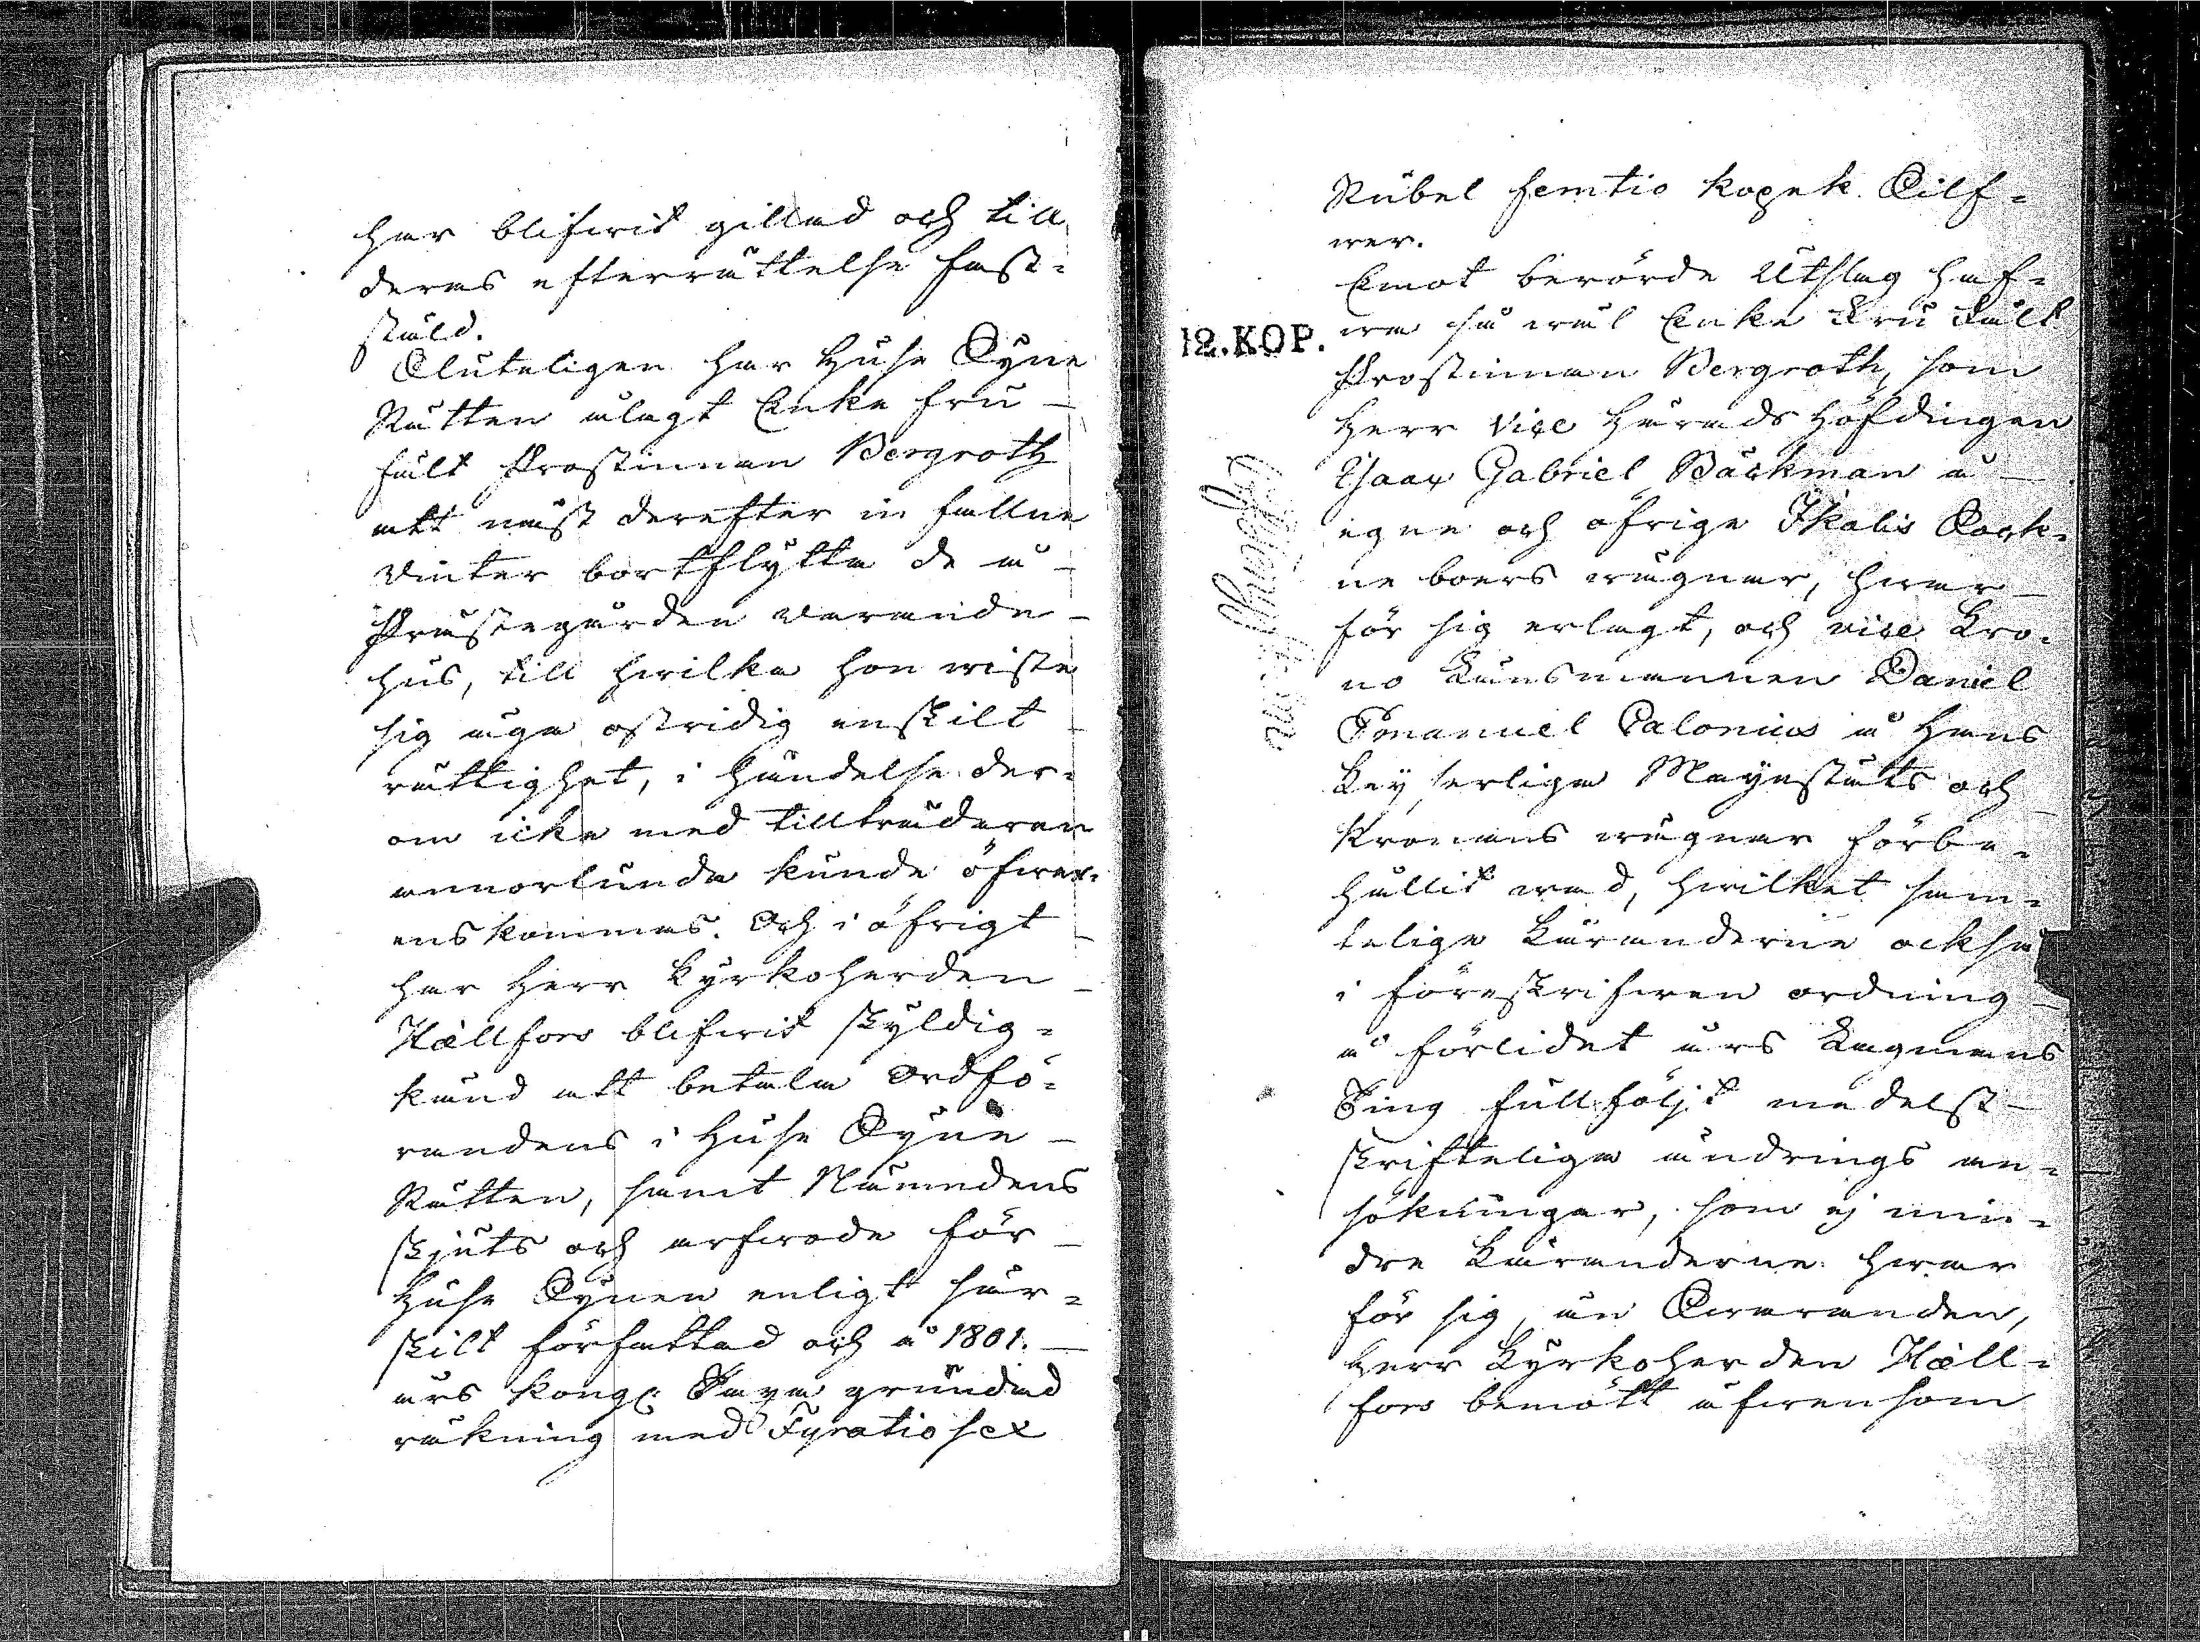 har blifwit gillad och till
deras efterrättelse fast-
stäld.
Sluteligen har Huse Syne
Rätten ålagt Enke Fru
Fält Prostinnan Bergroth
att näst derefter in fallne
Vinter bortflytta de å
Prästegården varande
hus, till hwilka hon wiste
sig äga ostridig enskilt
rättighet, i händelse der-
om icke med tillträdaren
annorlunda kunde öfwer-
enskommas. Och i öfrigt
har Herr Kyrkoherden
Hællfors blifwit skyldig-
känd att betala Ordfö-
randens i Huse Syne
Rätten, samt Nämndens
skjuts och arfwode för
Huse Synen enligt sär-
skilt författad och å 1801.
års Kongl: Taxa grundad
räkning med Fyratio sex
Rubel femtio kopek Silf-
wer.
Emot berörde Utslag haf-
12.KOP.
wa så wäl Enke Fru Fält
Prostinnan Bergroth, som
Herr Vice Härads Höfdingen
Isaac Gabriel Bäckman å
egne och öfrige Ikalis Sock-
ne boers wägnar, hwar
för sig erlagt, och vice Kro-
no Länsmannen Daniel
Emanuel Calonius å Hans
Keyserliga Mayestäts och
Kronans wägnar förbe-
hållit wad, hwilket sam-
telige Käranderne också
i föreskrifwen ordning
å förlidet års Lagmans
Ting fullföljt medelst
skrifteliga ändrings an-
sökningar, som ej min-
dre Käranderne hwar
för sig, än Swaranden,
Herr Kyrkoherden Hæll-
fors bemött äfwensom